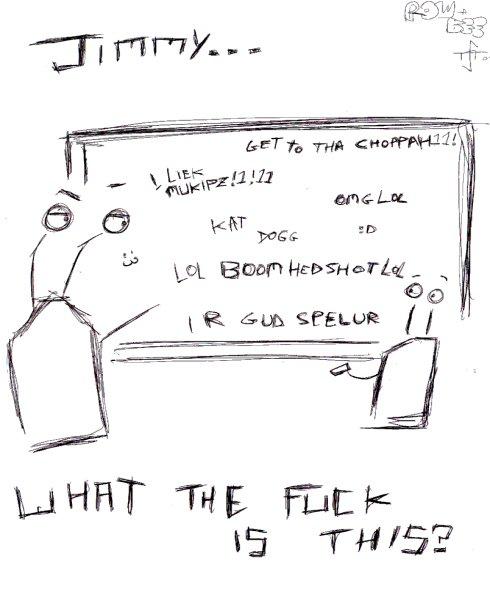 JIMMY...
GET TO THA CHOPPAH11!
I LIEK
MUKIPZ!1!11
OMG LOL
KAT
DOGG
:D
:3
LOL BOOM HEDSHOT LOL
I R GUD SPELUR
WHAT THE FUCK
IS THIS?